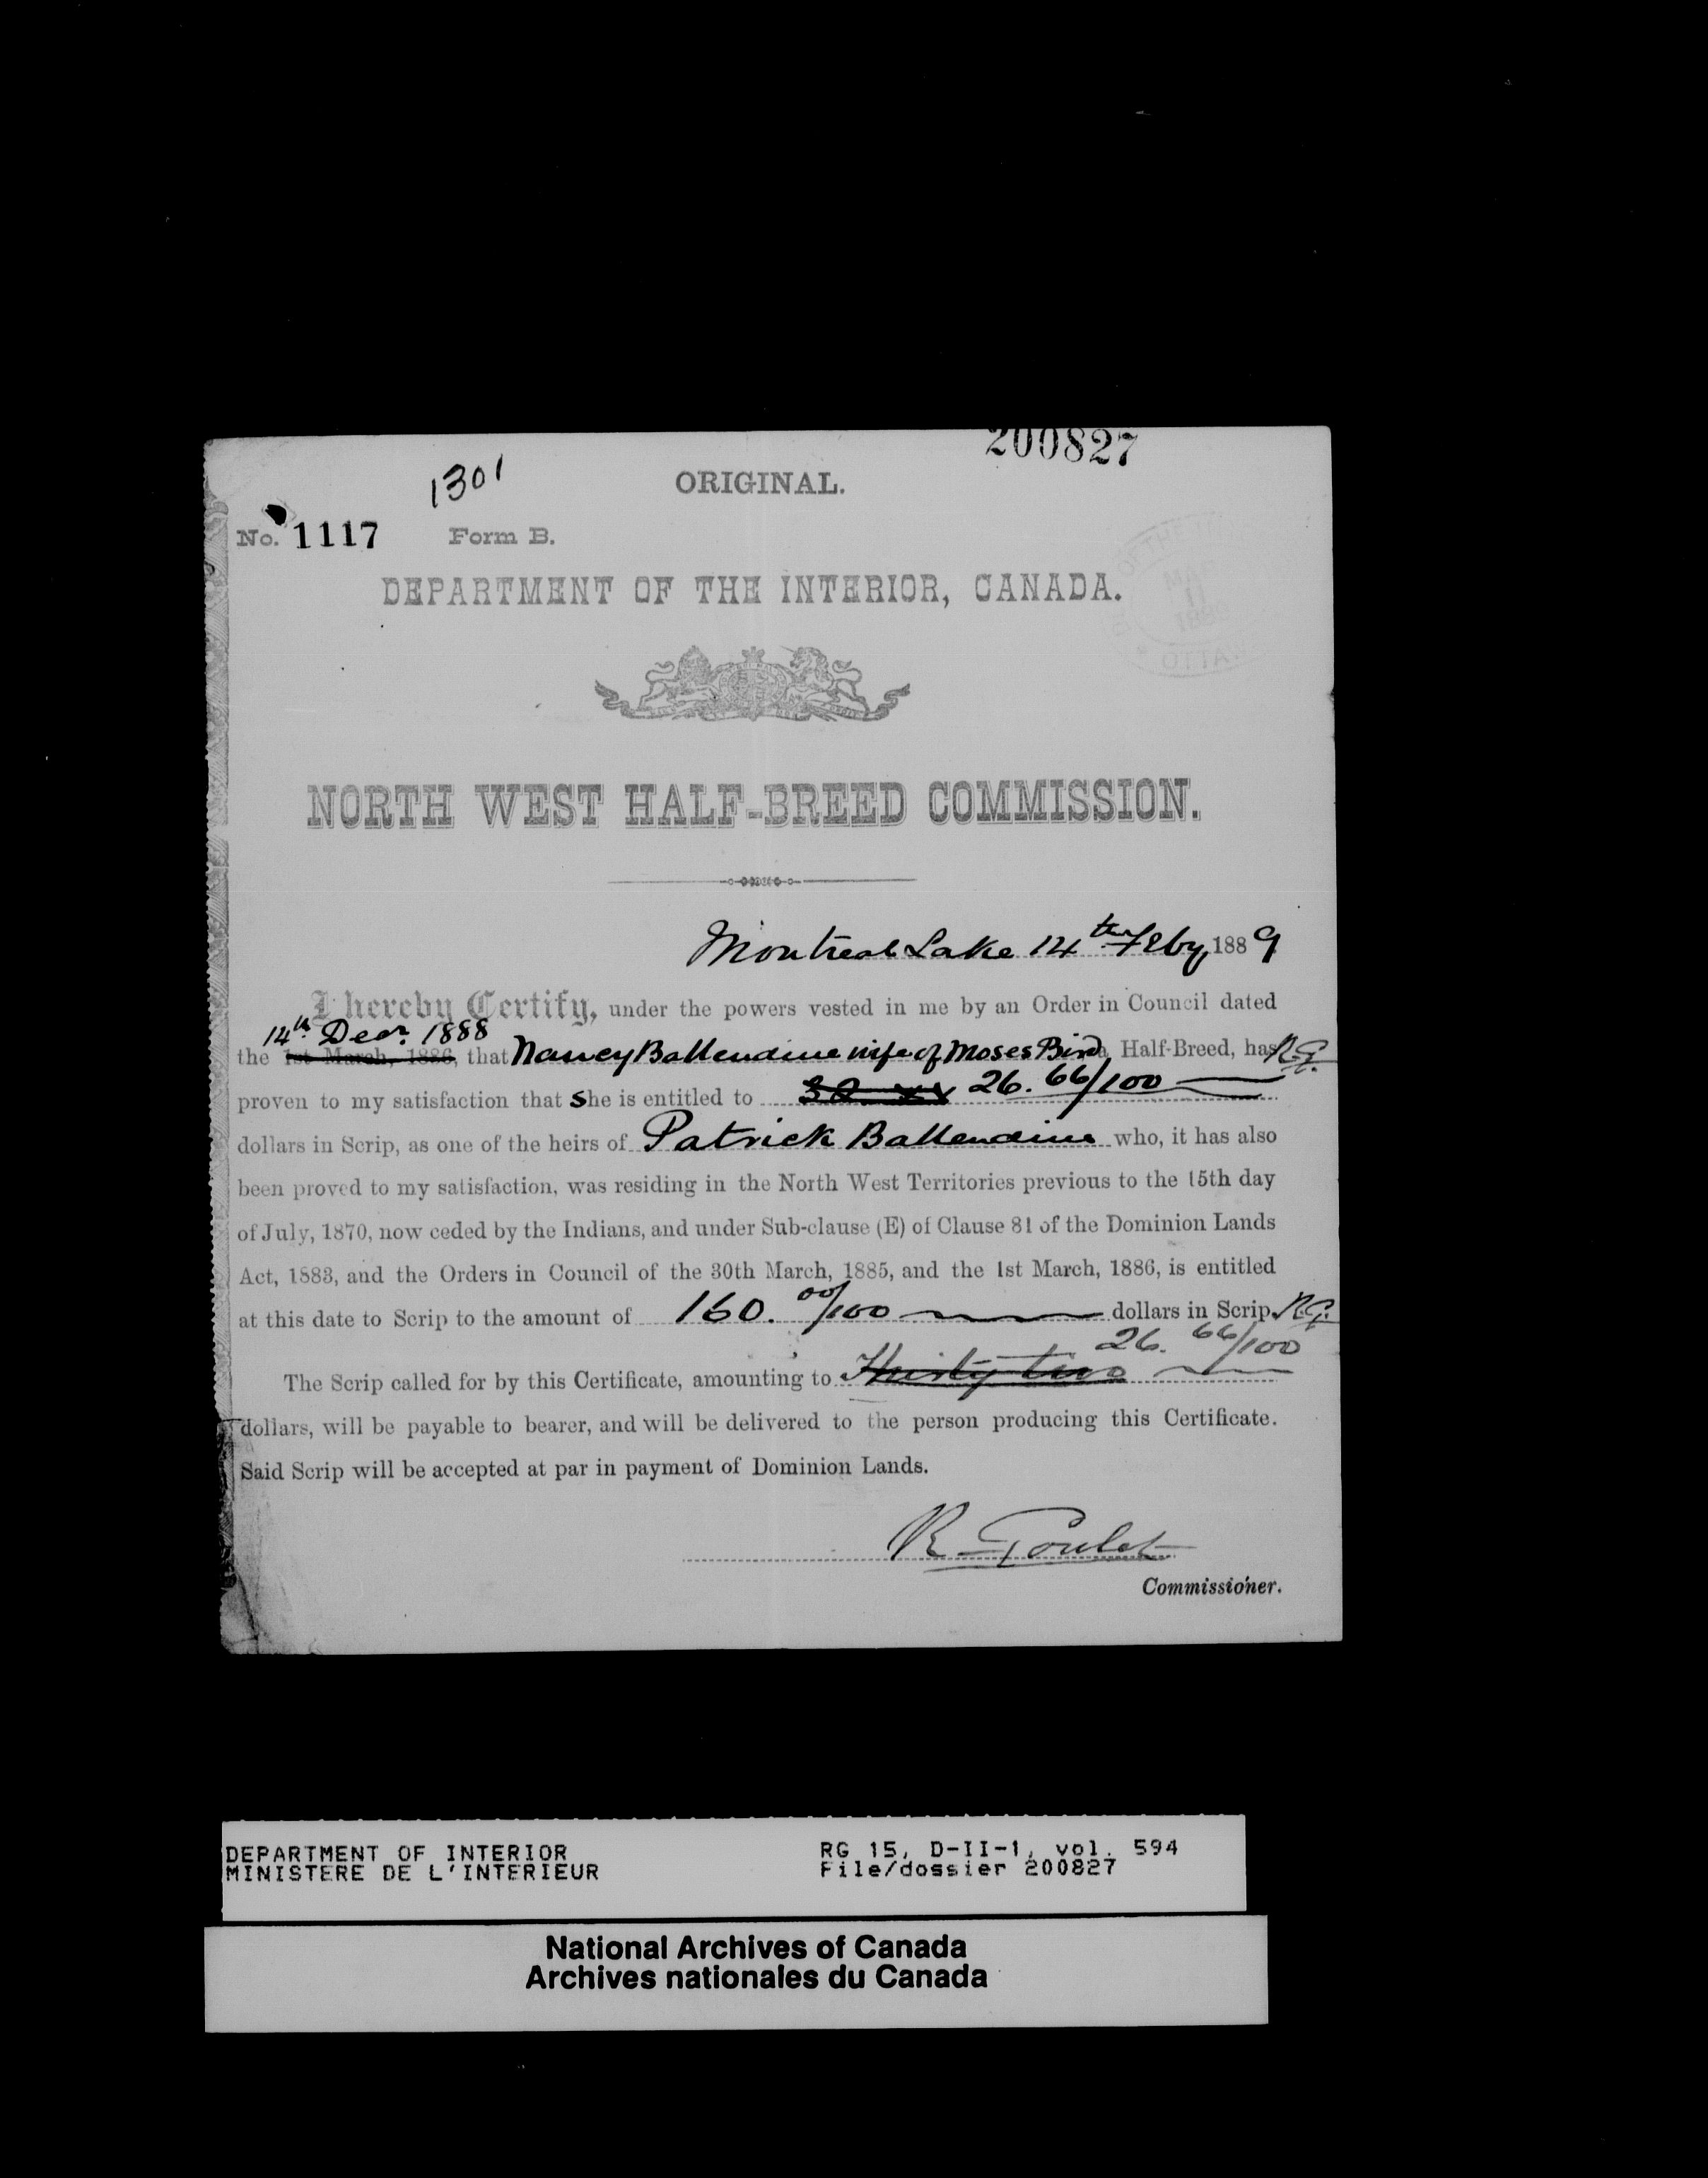 200827
1301
ORIGINAL.
No. 1117 Form B.
DEPARTMENT OF THE INTERIOR, CANADA.
MAR
11
1889
OTTA
NORTH WEST HALF-BREED COMMISSION.
Montreal Lake 14th Feby, 1889
I hereby Certify, under the powers vested in me by an Order in Council dated
14th Decr. 1888
the 1st March, 1886, that Nancy Ballendine wife of Moses Bird, Half-Breed, has R.G.
proven to my satisfaction that she is entitled to 26. 66/100
dollars in Scrip, as one of the heirs of Patrick Ballendine who, it has also
been proved to my satisfaction, was residing in the North West Territories previous to the 15th day
of July, 1870, now ceded by the Indians, and under Sub-clause (E) of Clause 81 of the Dominion Lands
Act, 1883, and the Orders in Council of the 30th March, 1885, and the 1st March, 1886, is entitled
at this date to Scrip to the amount of 160. 00/100 dollars in Scrip. R.G.
26. 66/100
The Scrip called for by this Certificate, amounting to Thirty two
dollars, will be payable to bearer, and will be delivered to the person producing this Certificate.
Said Scrip will be accepted at par in payment of Dominion Lands.
R Goulet
Commissioner.
DEPARTMENT OF INTERIOR RG 15, D-II-1, vol. 594
MINISTERE DE L'INTERIEUR File/dossier 200827
National Archives of Canada
Archives nationales du Canada